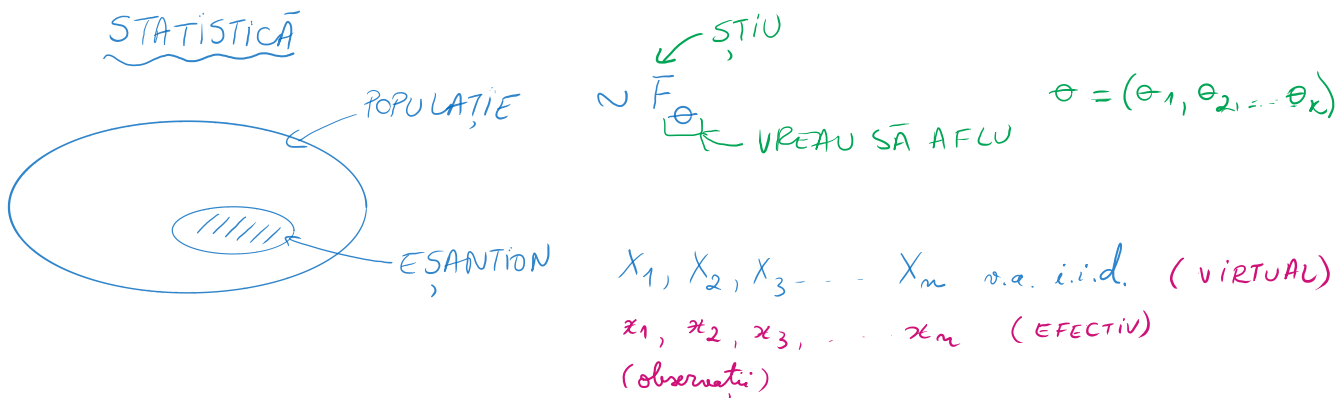 STATISTICĂ
ȘTIU
POPULAȚIE ~ F_θ θ = (θ1, θ2, ... θk)
VREAU SĂ AFLU
EȘANTION X1, X2, X3 .... Xn v.a. i.i.d. (VIRTUAL)
x1, x2, x3, .... xn (EFECTIV)
(observații)